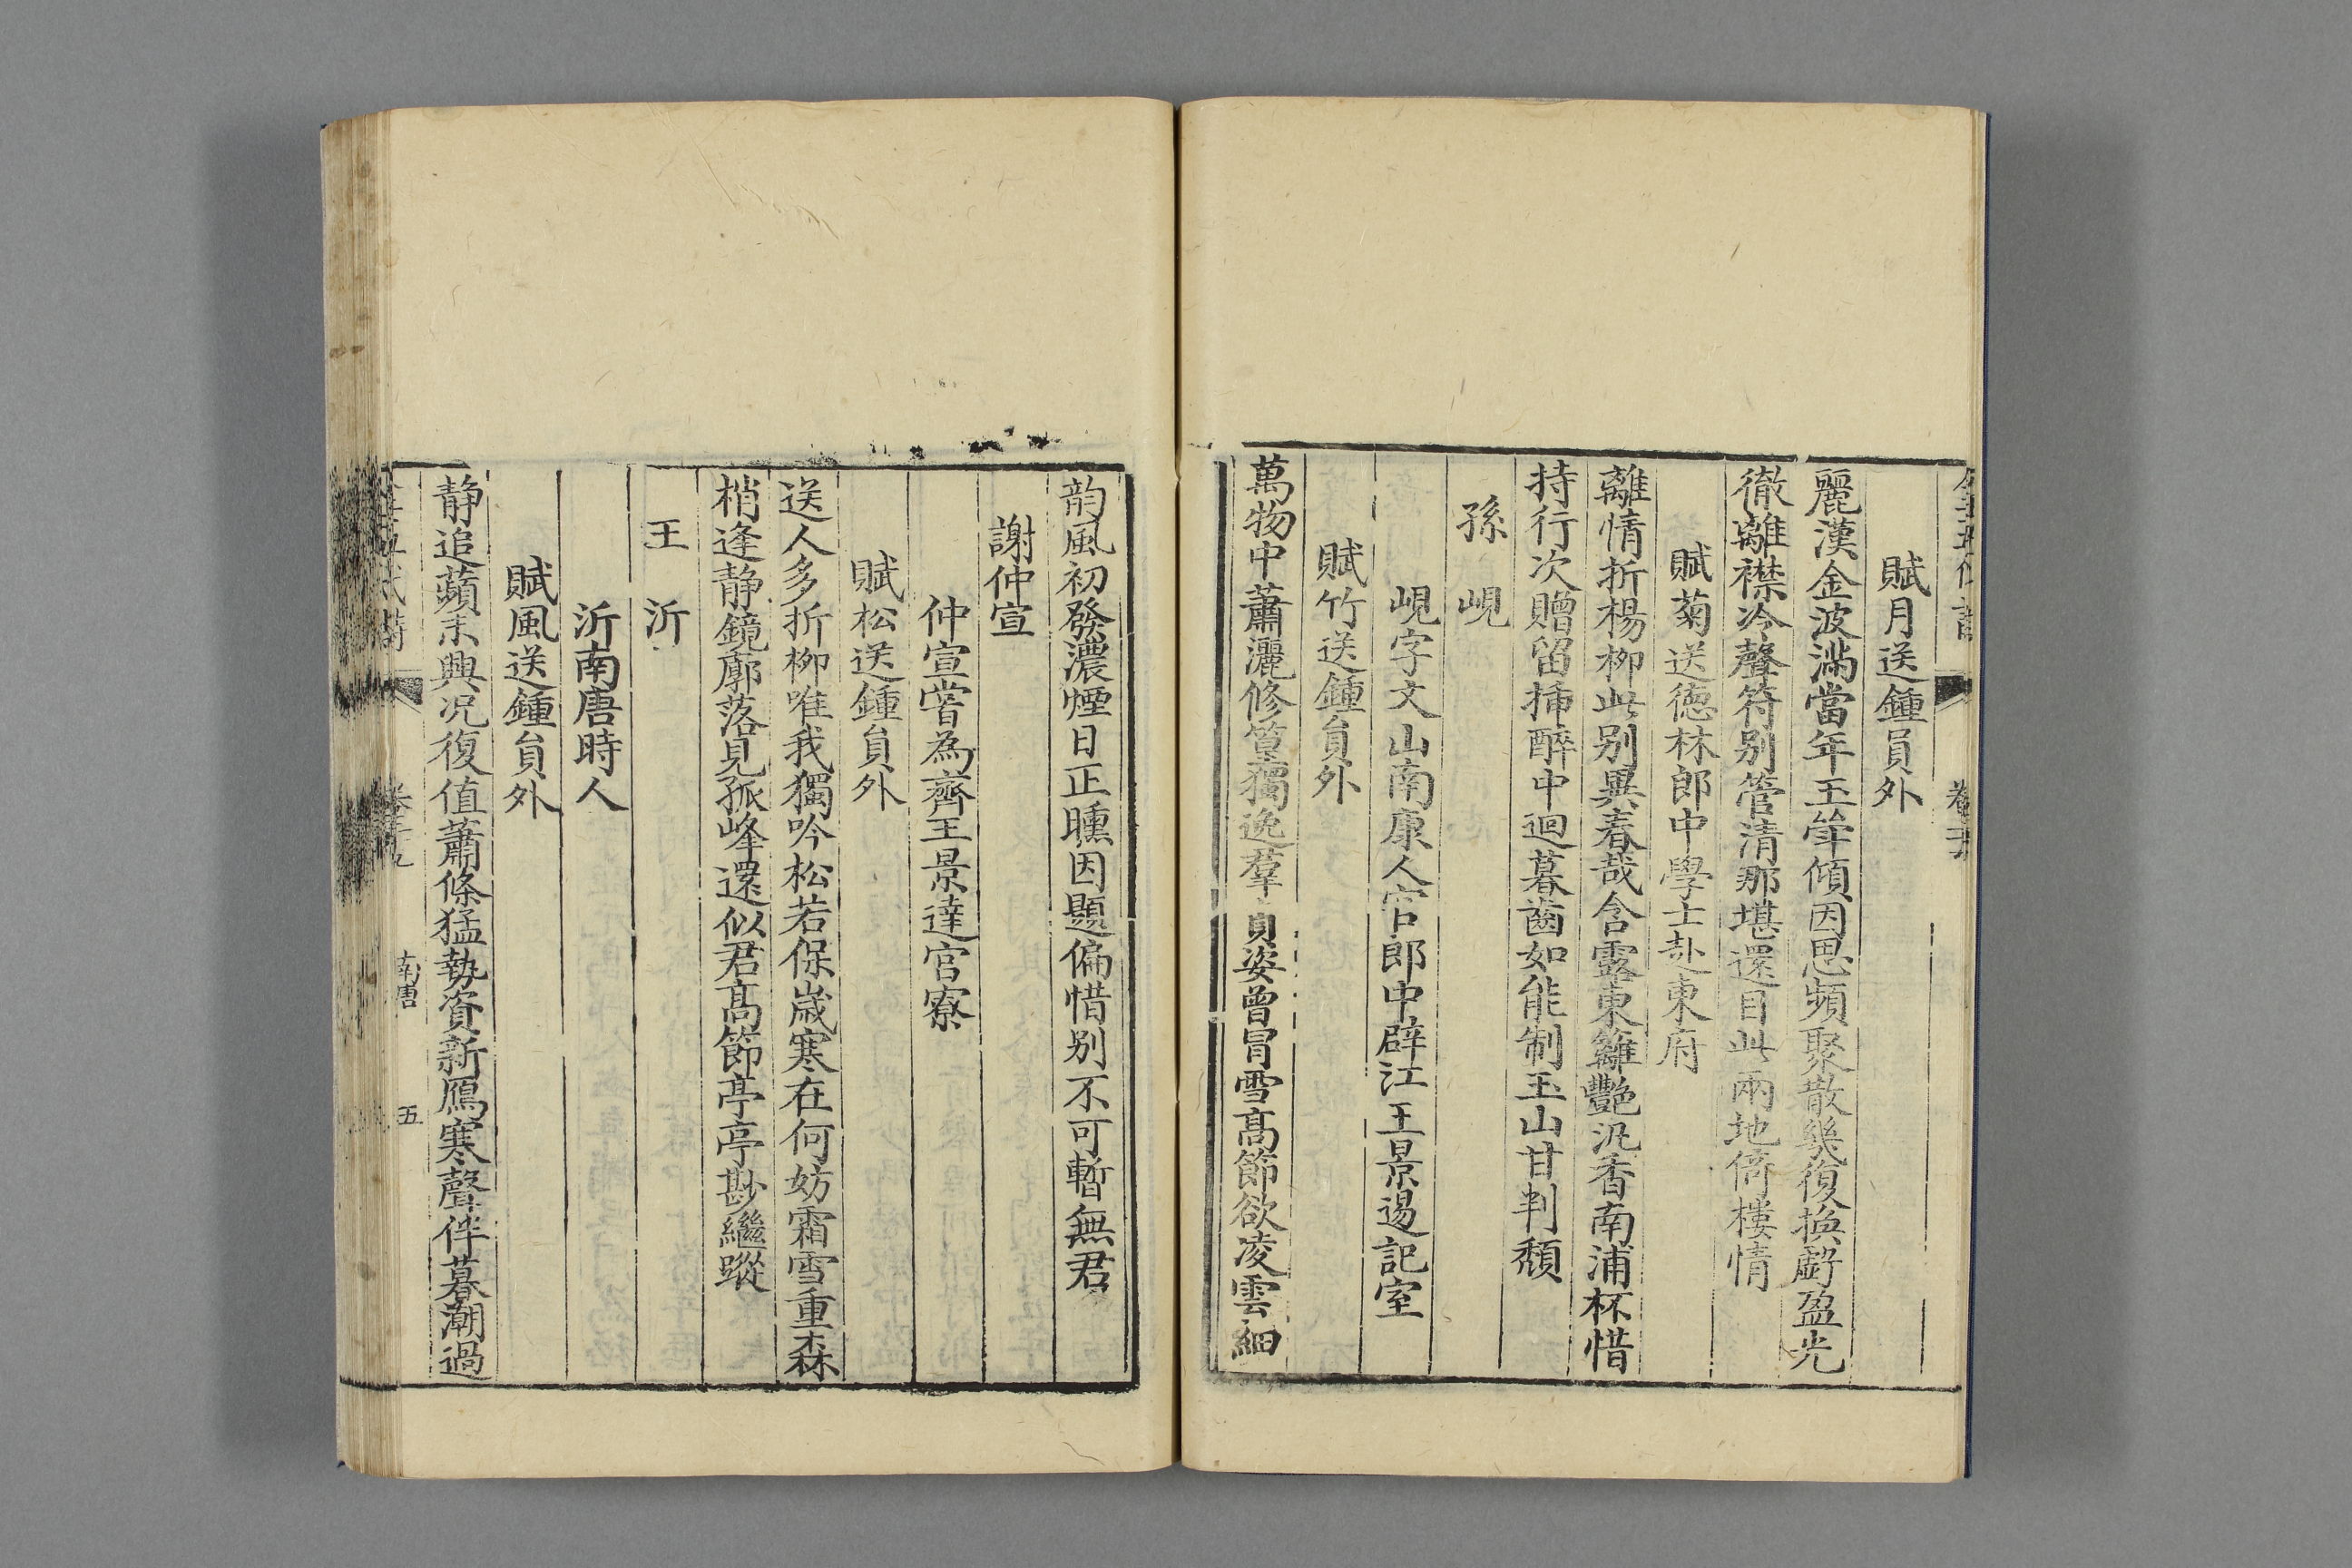 賦月送鍾員外
麗漢金波滿當年玉斚傾因思頻聚散幾復換虧盈光
徹離襟冷聲符別管清那堪還目此兩地倚樓情
賦菊送德林郎中學士赴東府
離情折楊柳此別異春哉含露東籬艷汎香南浦杯惜
持行次贈留插醉中迴暮齒如能制玉山甘判頹
孫峴
峴字文山南康人官郎中辟江王景逷記室
賦竹送鍾員外
萬物中蕭灑修篁獨逸羣貞姿曾冒雪高節欲凌雲細
韵風初發濃煙日正曛因題偏惜別不可暫無君
謝仲宣
仲宣嘗為齊王景達官寮
賦松送鍾員外
送人多折柳唯我獨吟松若保歲寒在何妨霜雪重森
梢逢静鏡廓落見孤峰還似君髙節亭亭尠繼蹤
王沂
沂南唐時人
賦風送鍾員外
静追蘋末興况復值蕭條猛勢資新鴈寒聲伴暮潮過
南唐
五